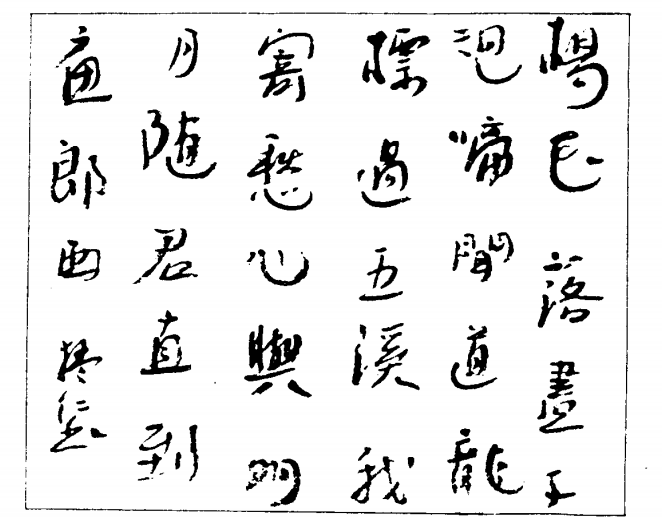 楊花落盡子
規啼聞道龍
標過五溪我
寄愁心與明
月随君直到
夜郎西